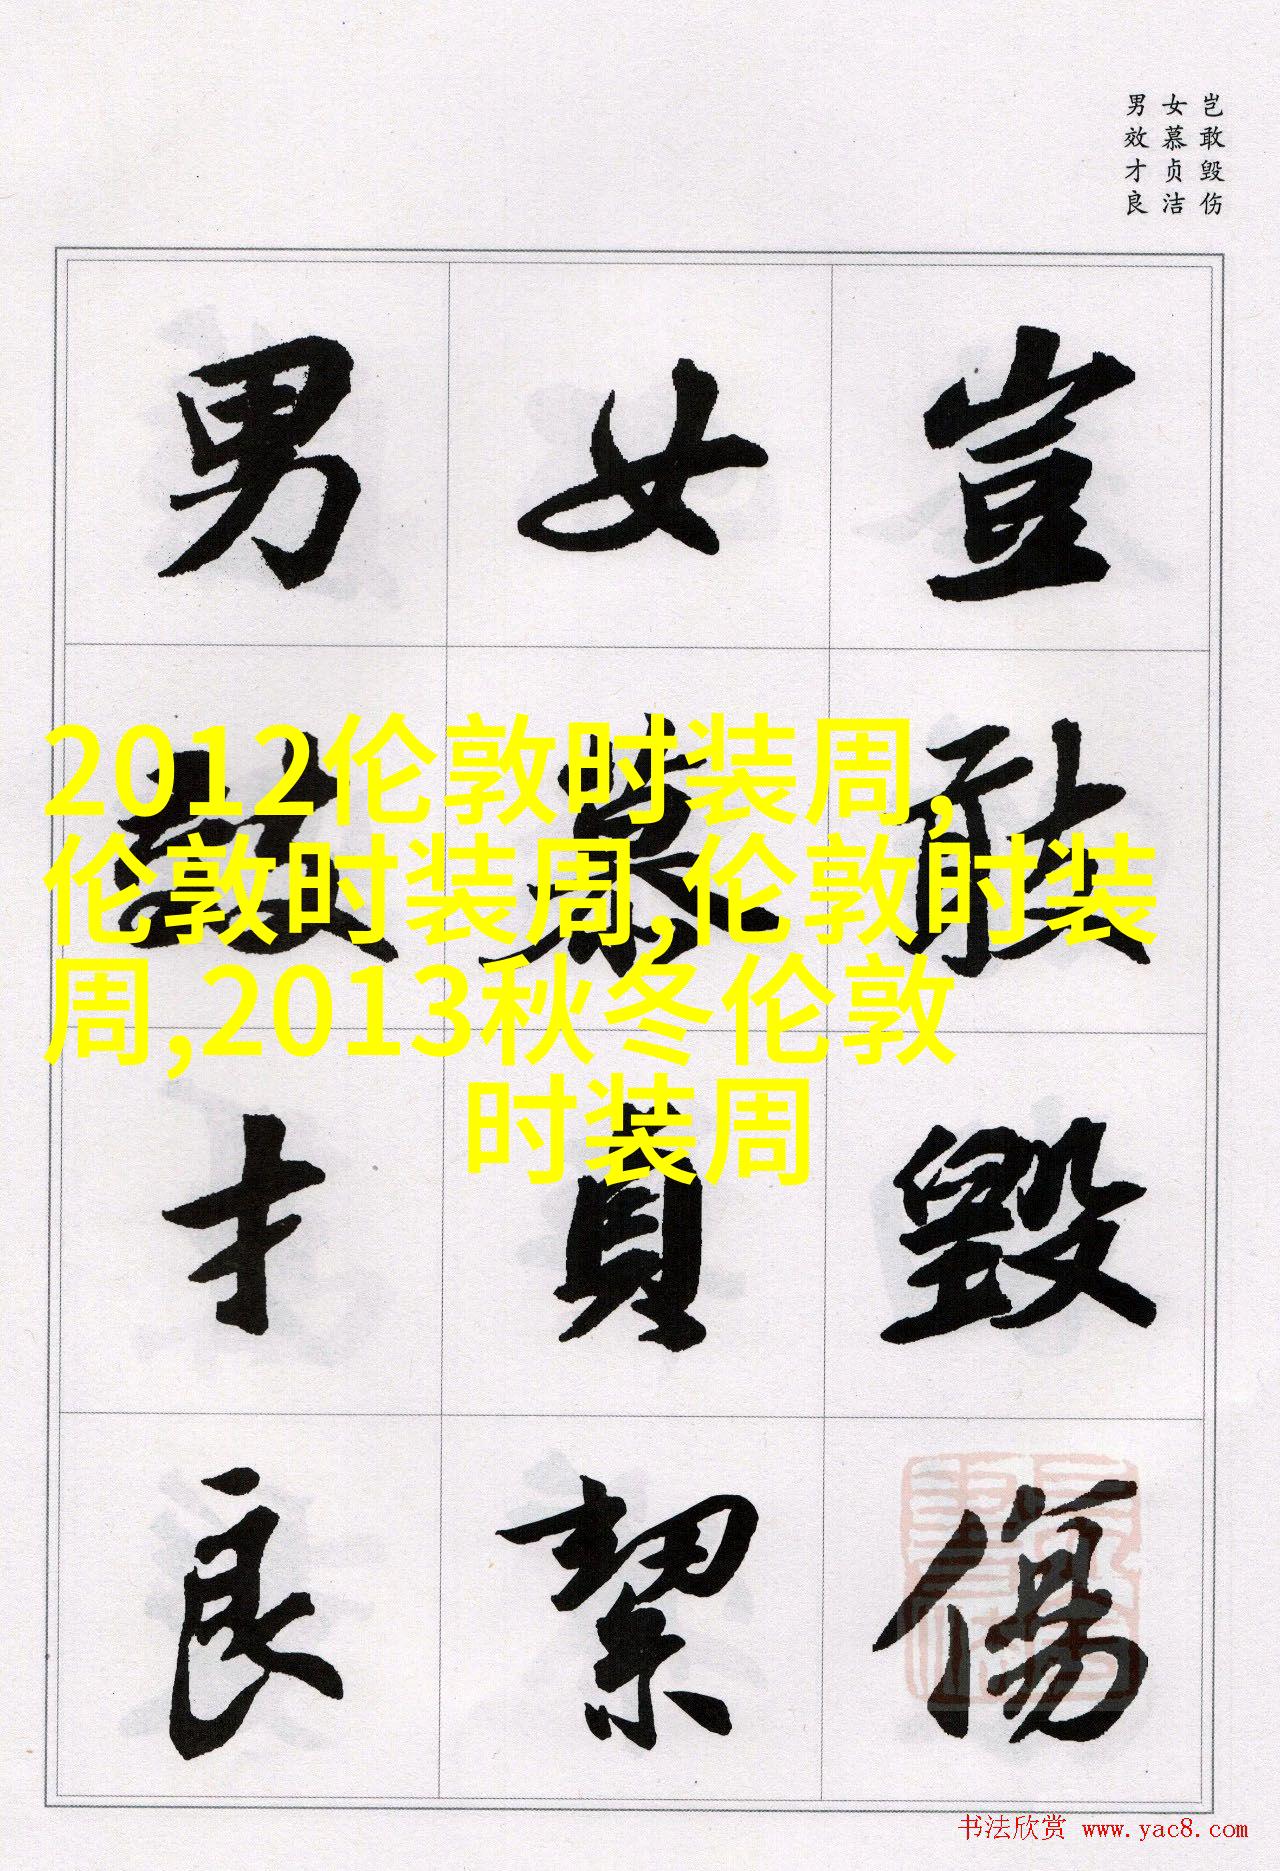 岂敢毁伤
女慕贞洁
男效才良
豈敢毀傷
女慕貞絜
男效才良
2012伦敦时装周,
伦敦时装周,伦敦时装
周,2013秋冬伦敦
时装周
书法欣赏 www.yac8.com